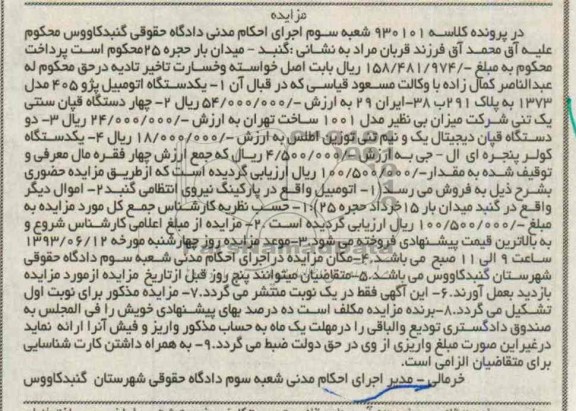 مزایده
در پرونده کلاسه ۹۳۰۱۰۱ شعبه سوم اجرای احکام مدنی دادگاه حقوقی گنبدکاووس محکوم
علیه آق محمد آق فرزند قربان مراد به نشانی :گنبد - میدان بار حجره ۲۵محکوم است پرداخت
محکوم به مبلغ -/۱۵۸/۴۸۱/۹۷۴ ریال بابت اصل خواسته وخسارت تاخیر تادیه درحق محکوم له
عبدالناصر کمال زاده با وکالت مسعود قیاسی که در قبال آن ۱- یکدستگاه اتومبیل پژو ۴۰۵ مدل
۱۳۷۳ به پلاک ۲۹۱ب ۳۸-ایران ۲۹ به ارزش -/۵۴/۰۰۰/۰۰۰ ریال ۲- چهار دستگاه قپان سنتی
یک تنی شرکت میزان بی نظیر مدل ۱۰۰۱ ساخت تهران به ارزش -/۲۴/۰۰۰/۰۰۰ ریال ۳- دو
دستگاه قپان دیجیتال یک و نیم تنی توزین اطلس به ارزش -/۱۸/۰۰۰/۰۰۰ ریال ۴- یکدستگاه
کولر پنجره ای ال - جی به ارزش -/۴/۵۰۰/۰۰۰ ریال که جمع ارزش چهار فقره مال معرفی و
توقیف شده به مقدار-/۱۰۰/۵۰۰/۰۰۰ ریال ارزیابی گردیده است که ازطریق مزایده حضوری
بشرح ذیل به فروش می رسد(۱- اتومبیل واقع در پارکینگ نیروی انتظامی گنبد۲- اموال دیگر
واقع در گنبد میدان بار ۱۵خرداد حجره ۲۵):۱- حسب نظریه کارشناس جمع کل مورد مزایده به
مبلغ -/۱۰۰/۵۰۰/۰۰۰ ریال ارزیابی گردیده است .۲- مزایده از مبلغ اعلامی کارشناس شروع و
به بالاترین قیمت پیشنهادی فروخته می شود.۳-موعد مزایده روز چهارشنبه مورخه ۱۳۹۳/۰۶/۱۲
ساعت ۹ الی ۱۱ صبح می باشد.۴-مکان مزایده دراجرای احکام مدنی شعبه سوم دادگاه حقوقی
شهرستان گنبدکاووس می باشد.۵-متقاضیان میتوانند پنج روز قبل ازتاریخ مزایده ازمورد مزایده
بازدید بعمل آورند.۶- این آگهی فقط در یک نوبت منتشر می گردد.۷- مزایده مذکور برای نوبت اول
تشکیل می گردد.۸-برنده مزایده مکلف است ده درصد بهای پیشنهادی خویش را فی المجلس به
صندوق دادگستری تودیع والباقی را درمهلت یک ماه به حساب مذکور واریز و فیش آنرا ارائه نماید
درغیراین صورت مبلغ واریزی از وی در حق دولت ضبط می گردد.۹- به همراه داشتن کارت شناسایی
برای متقاضیان الزامی است.
خرمالی - مدیر اجرای احکام مدنی شعبه سوم دادگاه حقوقی شهرستان گنبدکاووس